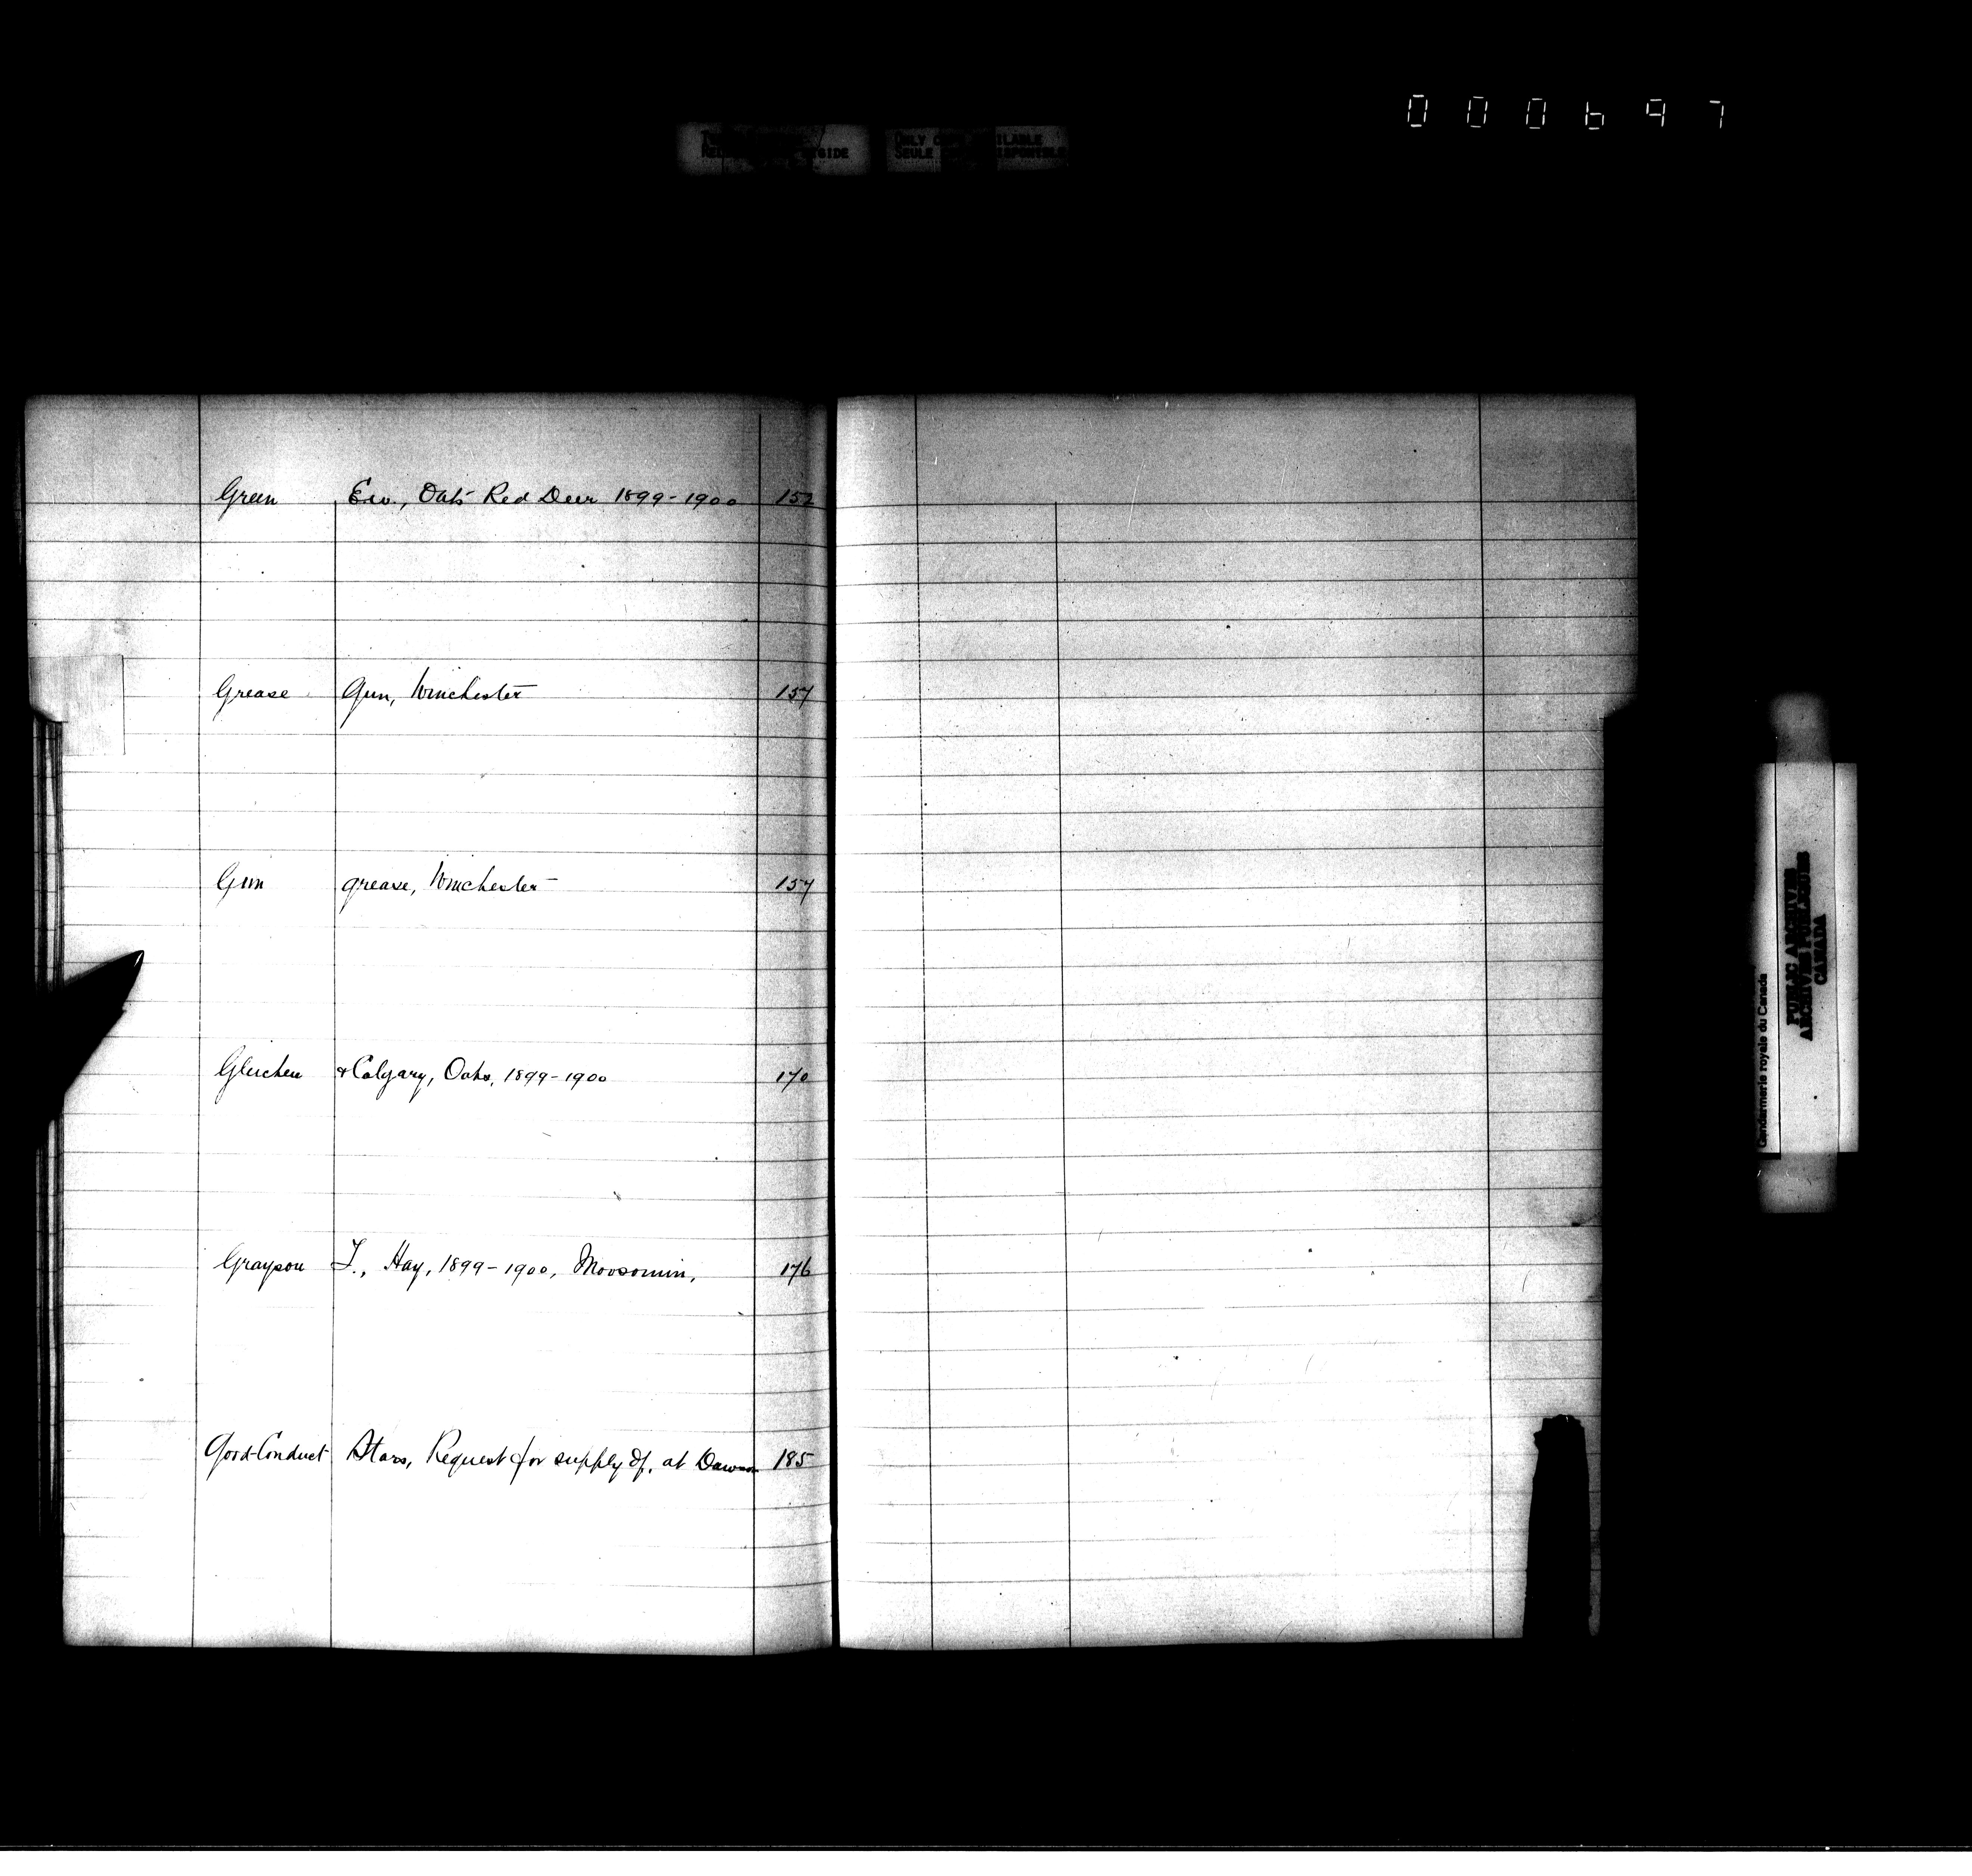 000697
ONLY COPY AVAILABLE
SEULE
Green Ew., Oats Red Deer 1899-1900 152
Grease Gun, Winchester 157
Gun grease, Winchester 157
Gleichen & Calgary, Oats, 1899-1900 170
Grayson T., Hay, 1899-1900, Moosomin, 176
Good-Conduct Stars, Request for supply of, at Dawson 185
Gendarmerie royale du Canada
PUBLIC ARCHIVES
ARCHIVES PUBLIQUES
CANADA